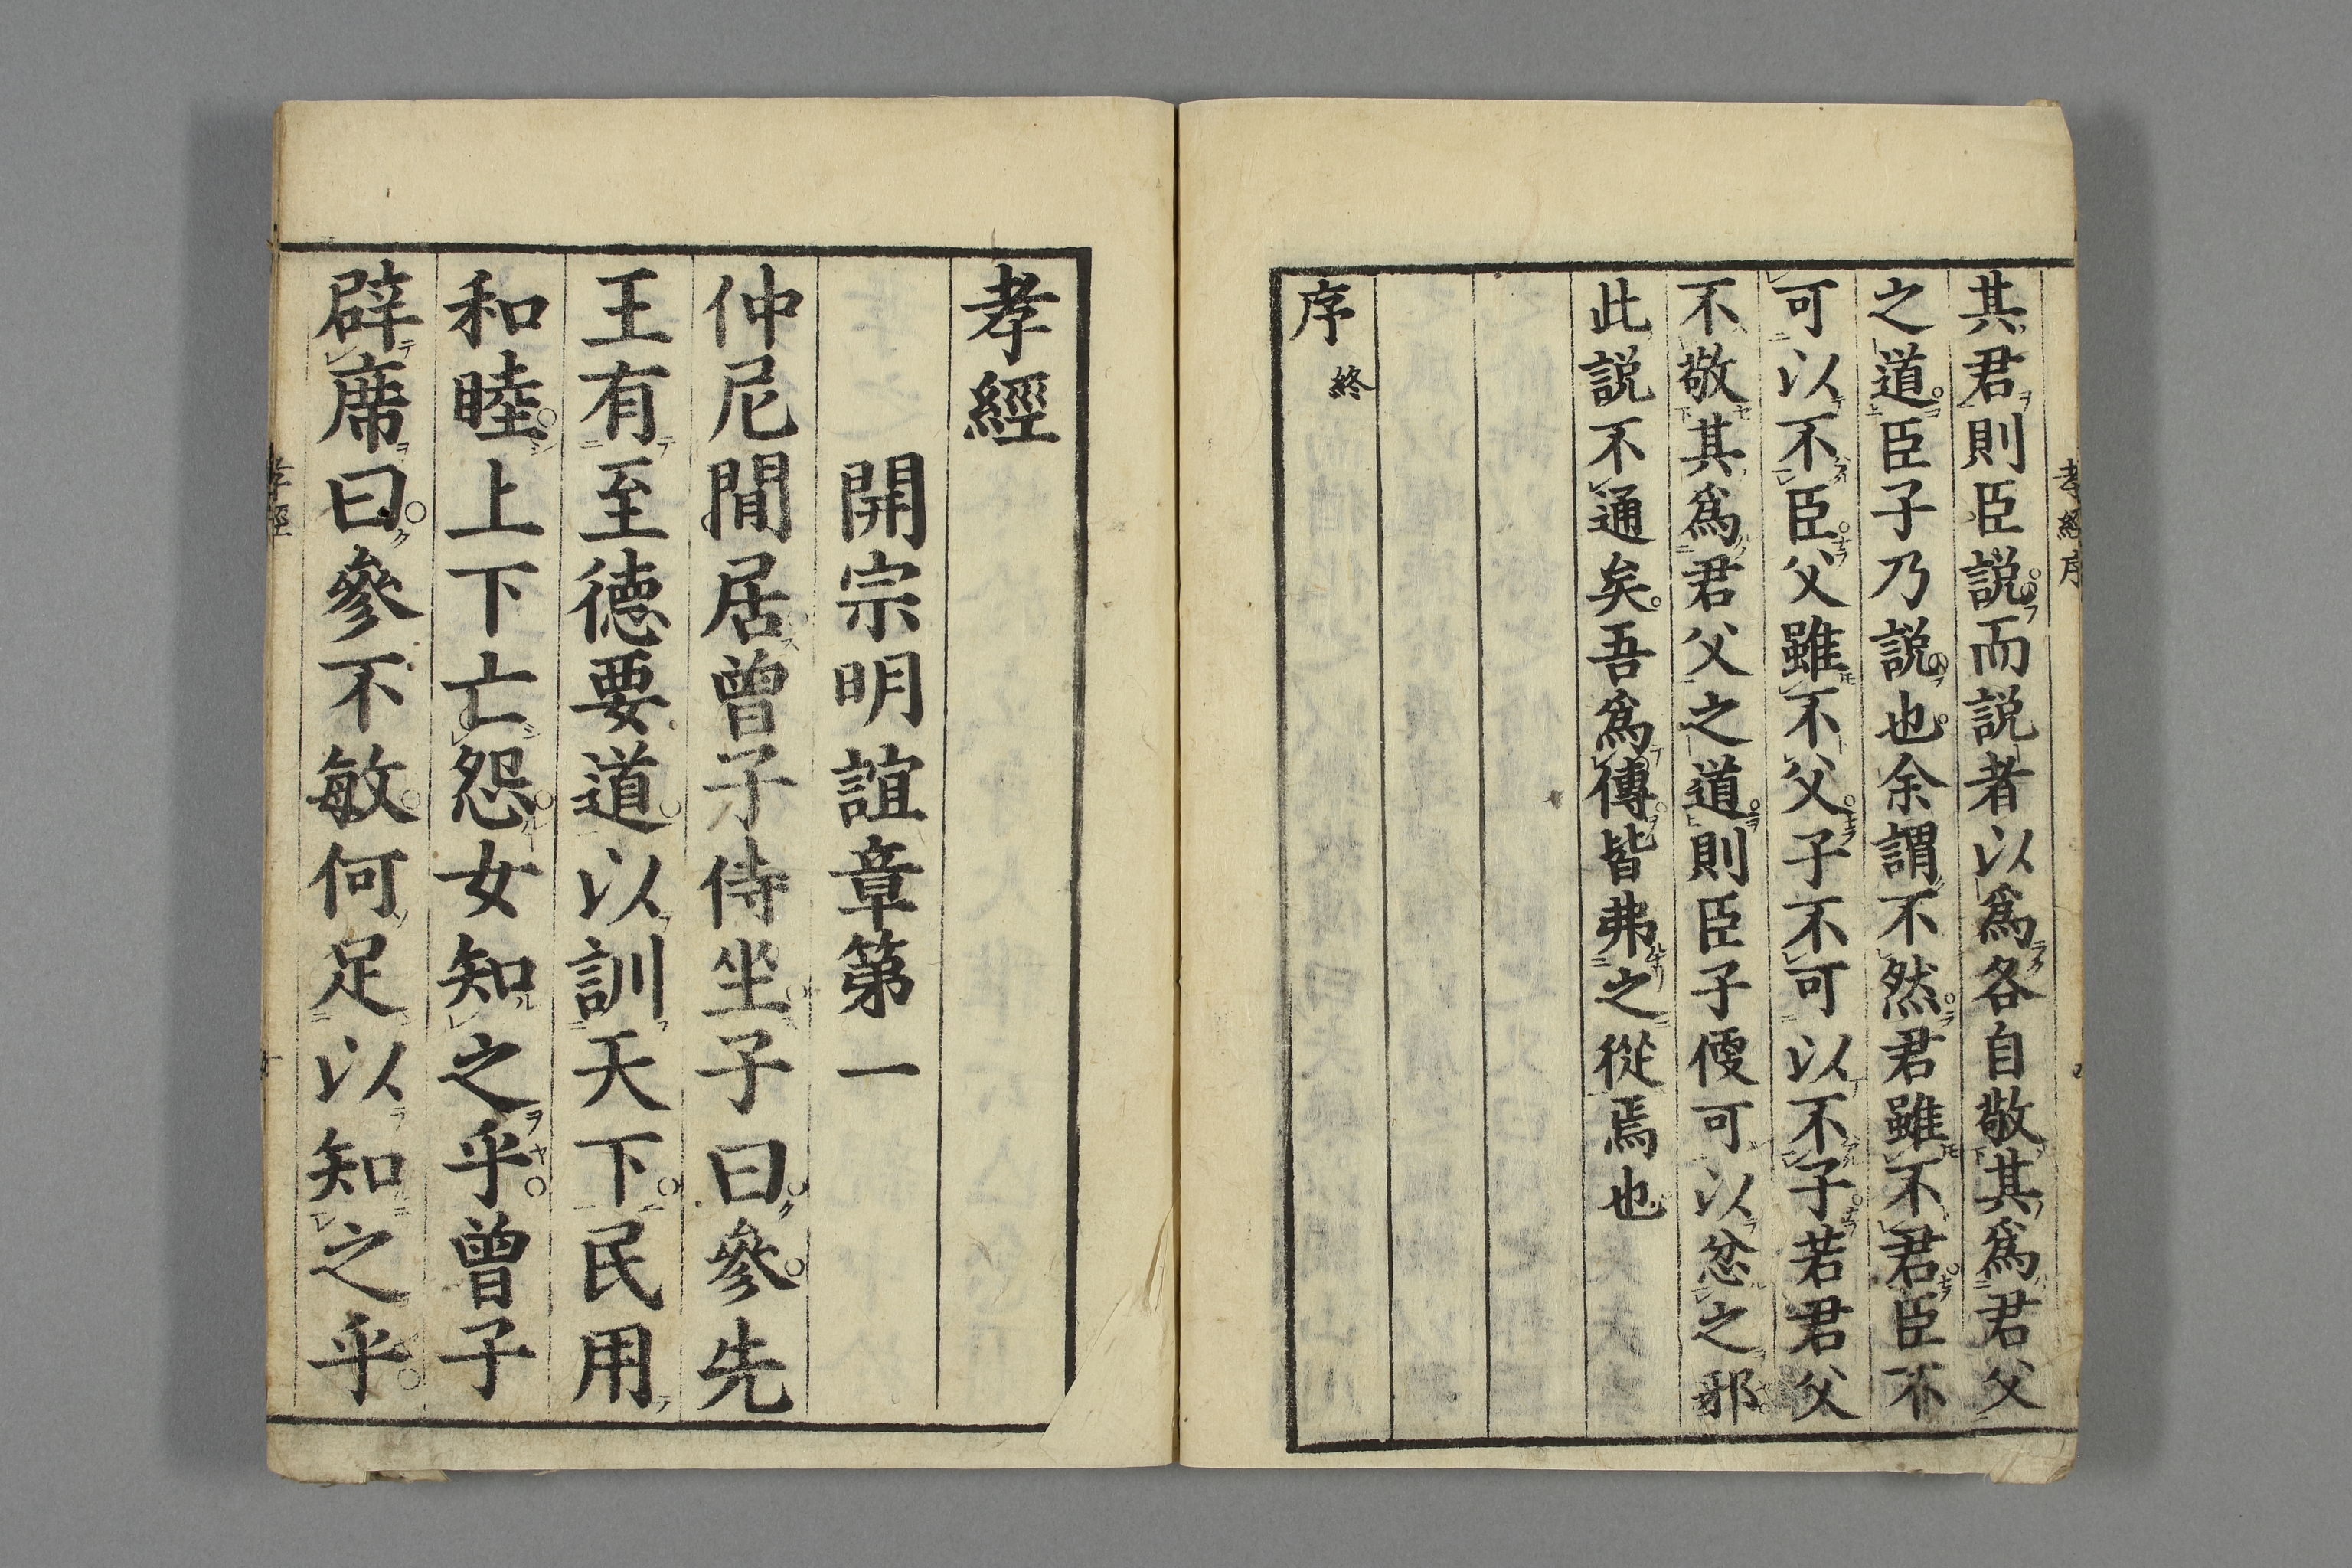 其君則臣説而説者以爲各自敬其爲君父
之道臣子乃説也余謂不然君雖不君臣不
可以不臣父雖不父子不可以不子若君父
不敬其爲君父之道則臣子便可以忿之邪
此説不通矣吾爲傳皆弗之從焉也
序終
孝經序
孝經
開宗明誼章第一
仲尼間居曾子侍坐子曰參先
王有至德要道以訓天下民用
和睦上下亡怨女知之乎曾子
辟席曰參不敏何足以知之乎
孝經